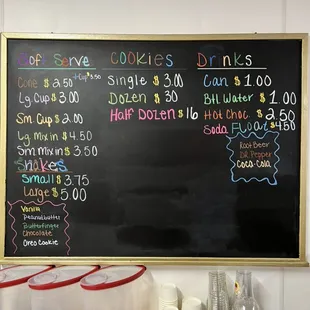 Soft Serve
Cone $2.50 +Cup $3.50
Lg. Cup $3.00
Sm. Cup $2.00
Lg. Mix in $4.50
Sm. Mix in $3.50
Shakes
Small $3.75
Large $5.00
Vanilla
Peanutbutter
Butterfinger
Chocolate
Oreo Cookie
COOKIES
Single $3.00
Dozen $30
Half Dozen $16
Drinks
Can $1.00
Btl. Water $1.00
Hot Choc $2.50
Soda Float $4.50
Root Beer
DR Pepper
Coca-Cola